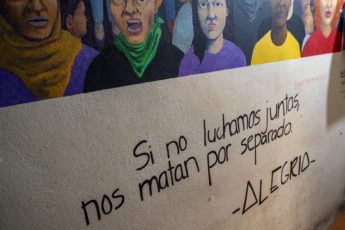 Si no luchamos juntas,
nos matan por separado.
-ALEGRIA-